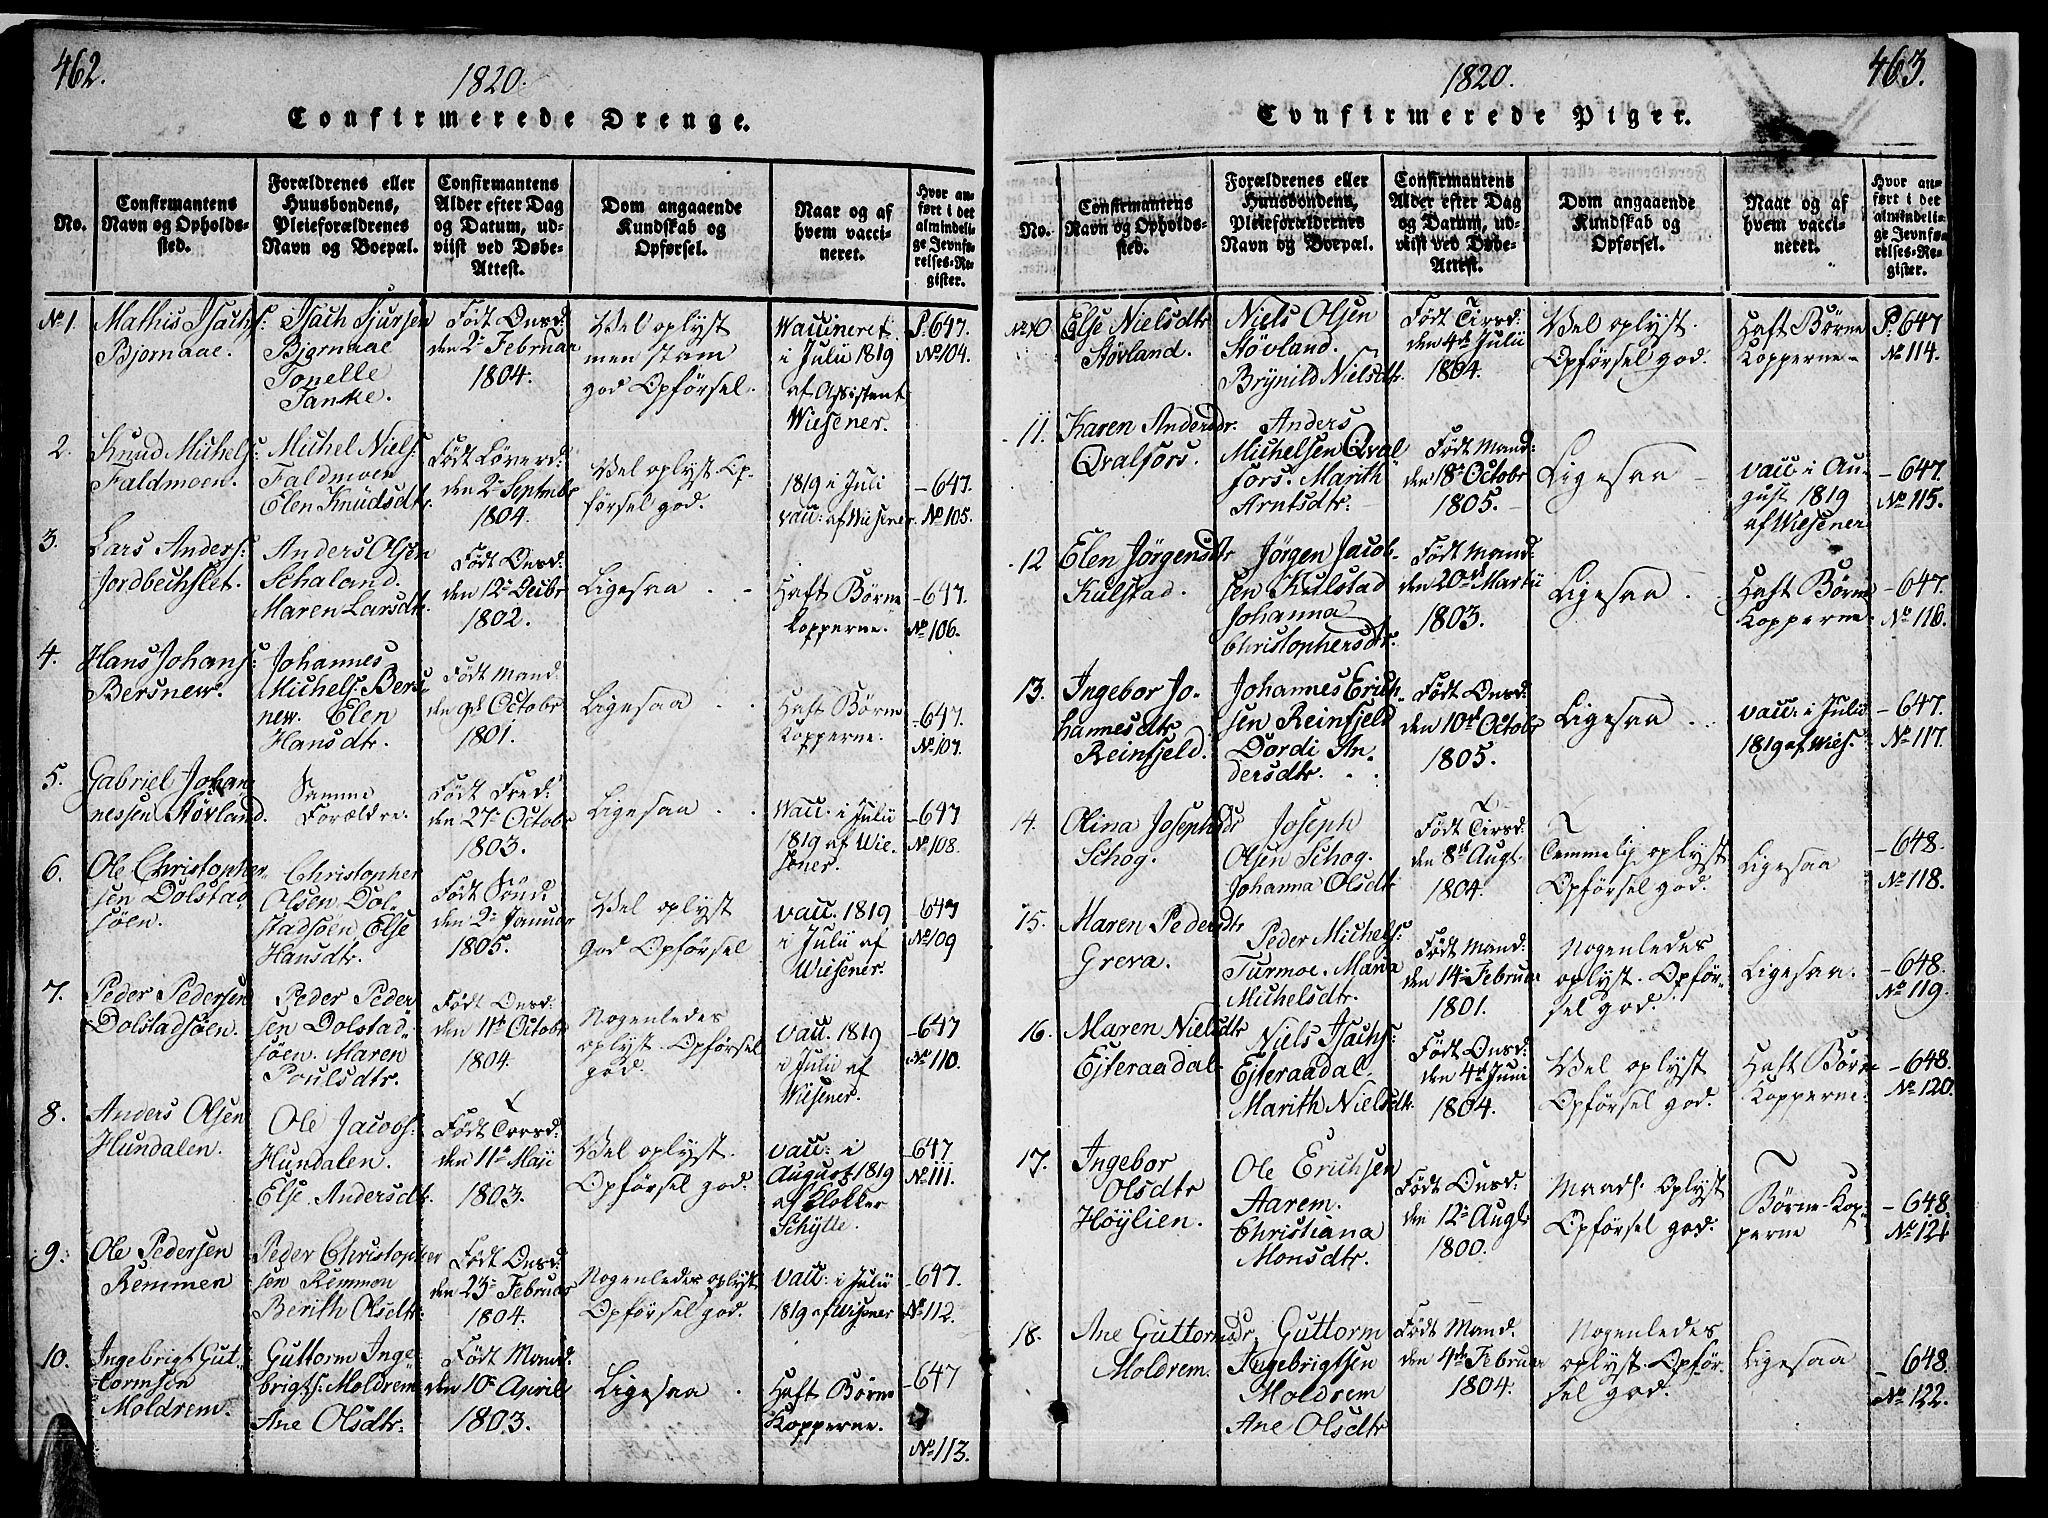 462.
1820.
Confirmerede Drenge.
No.
Confirmantens
Navn og Opholds-
sted.
Forældrenes eller
Huusbondens,
Pleieforældrenes
Navn og Boepæl.
Confirmantens
Alder efter Dag
og Datum, ud-
viist ved Døbe-
Attest.
Dom angaaende
Kundskab og
Opførsel.
Naar og af
hvem vacci-
neret.
Hvor an-
ført i det
almindeli-
ge Jevnfø-
relses-Re-
gister.
No 1.
Mathis Isachs:
Bjørnaae.
Isach Sjursen
Bjørnaae
Tonelle
Tanke.
Født Onsd:
den 2. Februar
1804.
Vel oplyst
men stam
god Opførsel.
Vaccineret
i Julii 1819
af Assistent
Wiesener.
P. 647.
No 104.
2.
Knud Michels:
Faldmoen.
Michel Niels:
Faldmoen
Elen Knudsdtr.
Født Løverd:
den 2. Septembr
1804.
Vel oplyst Op-
førsel god.
1819 i Juli
vacc: af Wiesener
- 647.
No 105.
3.
Lars Anders:
Jordbechslet.
Anders Olsen
Schaland.
Maren Larsdtr.
Født Onsd:
den 12. Decbr
1802.
Ligesaa
Haft Børne
Kopperne.
- 647.
No 106.
4.
Hans Johans:
Bersnew.
Johannes
Michels. Bers-
new. Elen
Hansdtr.
Født Mand
den 9d Octobr
1801.
Ligesaa
Haft Børne
Kopperne.
- 647.
No 107.
5.
Gabriel Johan-
nessen Støvland.
Samme
Forældre.
Født Fred:
den 27. Octobr
1803.
Ligesaa
Vacc: i Julii
1819 af Wie-
sener.
- 647
No 108.
6.
Ole Christopher-
sen Dolstad-
søen.
Christopher
Olsen Dol-
stadsøen Else
Hansdtr.
Født Sønd:
den 2. Januar
1805.
Vel oplyst
god Opførsel
vacc. 1819
i Julii af
Wiesener.
- 647
No 109
7.
Peder Pedersen
Dolstadsøen.
Peder Peder-
sen Dolstad-
søen. Maren
Poulsdtr.
Født Onsd:
den 11t Octobr
1804.
Nogenledes
oplyst. Opførsel
god.
vacc. 1819
i Julii af
Wiesener.
- 647
No 110.
8.
Anders Olsen
Hundalen.
Ole Jacobs:
Hundalen.
Else Andersdtr.
Født Torsd:
den 11. Maji
1803.
Vel oplyst.
Opførsel god.
vacc: i
August 1819
af Klokker
Schytte.
- 647
No 111.
9.
Ole Pedersen
Remmen
Peder Christopher
sen Remmen
Berith Olsdtr.
Født Onsd:
den 23. Februar
1804.
Nogenledes oplyst
Opførsel god.
vacc: i Julii
1819 af Wisener
- 647.
No 112.
10.
Ingebrigt Gut-
tormsen
Moldrem.
Guttorm Inge-
brigts: Moldrem
Ane Olsdtr.
Født Mand.
den 10. Aprili
1803.
Ligesaa
Haft Børne
Kopperne.
- 647
No 113.
463.
1820.
Confirmerede Piger.
No.
Confirmantens
Navn og Opholds-
sted.
Forældrenes eller
Huusbondens,
Pleieforældrenes
Navn og Boepæl.
Confirmantens
Alder efter Dag
og Datum, ud-
viist ved Døbe-
Attest.
Dom angaaende
Kundskab og
Opførsel.
Naar og af
hvem vacci-
neret.
Hvor an-
ført i det
almindeli-
ge Jevnfø-
relses-Re-
gister.
No 10.
Else Nielsdtr
Støvland.
Niels Olsen
Støvland.
Brynild Nielsdtr.
Født Tirsd:
den 4de Julii
1804.
Vel oplyst.
Opførsel god.
Haft Børne
Kopperne
P. 647
No 114.
11.
Karen Andersdr.
Qvalfors.
Anders
Michelsen Qval-
fors. Marith
Arntsdtr.
Født Mand:
den 18. Octobr
1805.
Ligesaa
vacc. i Au-
gust 1819
af Wiesener
- 647.
No 115.
12
Elen Jørgensdtr
Kulstad.
Jørgen Jacob-
sen Kulstad
Johanna
Christophersdtr.
Født Mand:
den 20de Martii
1803.
Ligesaa
Haft Børne
Kopperne.
- 647.
No 116.
13.
Ingebor Jo-
hannesdtr.
Reinfjeld.
Johannes Erich-
sen Reinfjeld
Dordi An-
dersdtr.
Født Onsd:
den 10de Octobr
1805.
Ligesaa
vacc: i Julii
1819 af Wies.
- 647.
No 117.
14.
Olina Josephsdr
Schog.
Joseph
Olsen Schog.
Johanna Olsdtr
Født Tirsd:
den 8de Augt.
1804.
Temmelig oplyst
Opførsel god.
Ligesaa
- 648.
No 118.
15.
Maren Pedersdtr
Greva.
Peder Michels:
Turmoe. Maria
Michelsdtr.
Født Mand:
den 14. Februar
1801.
Nogenledes
oplyst. Opfør-
sel god.
Ligesaa.
- 648.
No 119.
16.
Maren Nielsdtr
Ejteraadal.
Niels Isachs:
Ejteraadal.
Marith Nielsdtr.
Født Onsd:
den 4de Juni
1804.
Vel oplyst
Opførsel god.
Haft Børne
Kopperne.
- 648.
No 120.
17.
Ingebor
Olsdtr
Høylien.
Ole Erichsen
Aarem.
Christiana
Monsdtr.
Født Onsd:
den 12. Augt
1800.
Maadl. Oplyst
Opførsel god.
Børne-Kop-
perne
- 648.
No 121
18.
Ane Guttormsdr
Moldrem.
Guttorm
Ingebrigtsen
Moldrem
Ane Olsdtr
Født Mand.
den 4de Februar
1804.
Nogenledes
oplyst. Opfør-
sel god.
Ligesaa
- 648.
No 122.